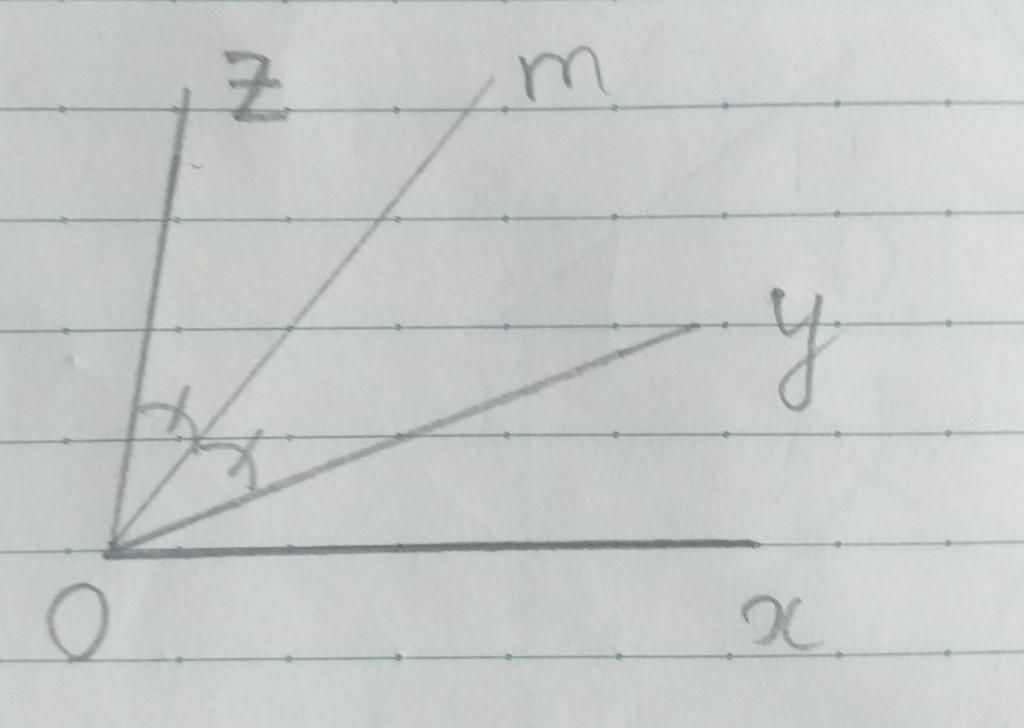 z m
y
O x